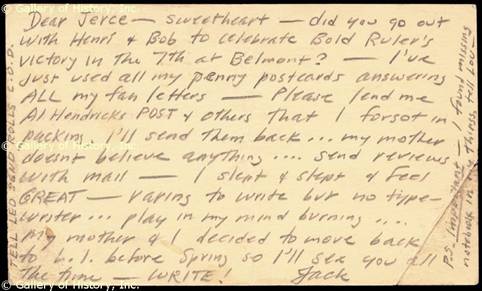 © Gallery of History, Inc.
Dear Jerce — sweetheart — did you go out
with Henri & Bob to celebrate Bold Ruler's
victory in the 7th at Belmont? — I've
just used all my penny postcards answering
ALL my fan letters — Please lend me
Al Hendricks POST & others that I forgot in
packing I'll send them back... my mother
doesnt believe anything.... send reviews
with mail — I slept & slept & feel
GREAT — raring to write but no type-
writer... play in my mind burning ....
My mother & I decided to move back
to L.I. before Spring so I'll see you all
the time — WRITE! Jack
P.S. — Important — I found missing
notebook in my things, tell Lou —
TELL LEO ROLLS C.O.D.
© Gallery of History, Inc.